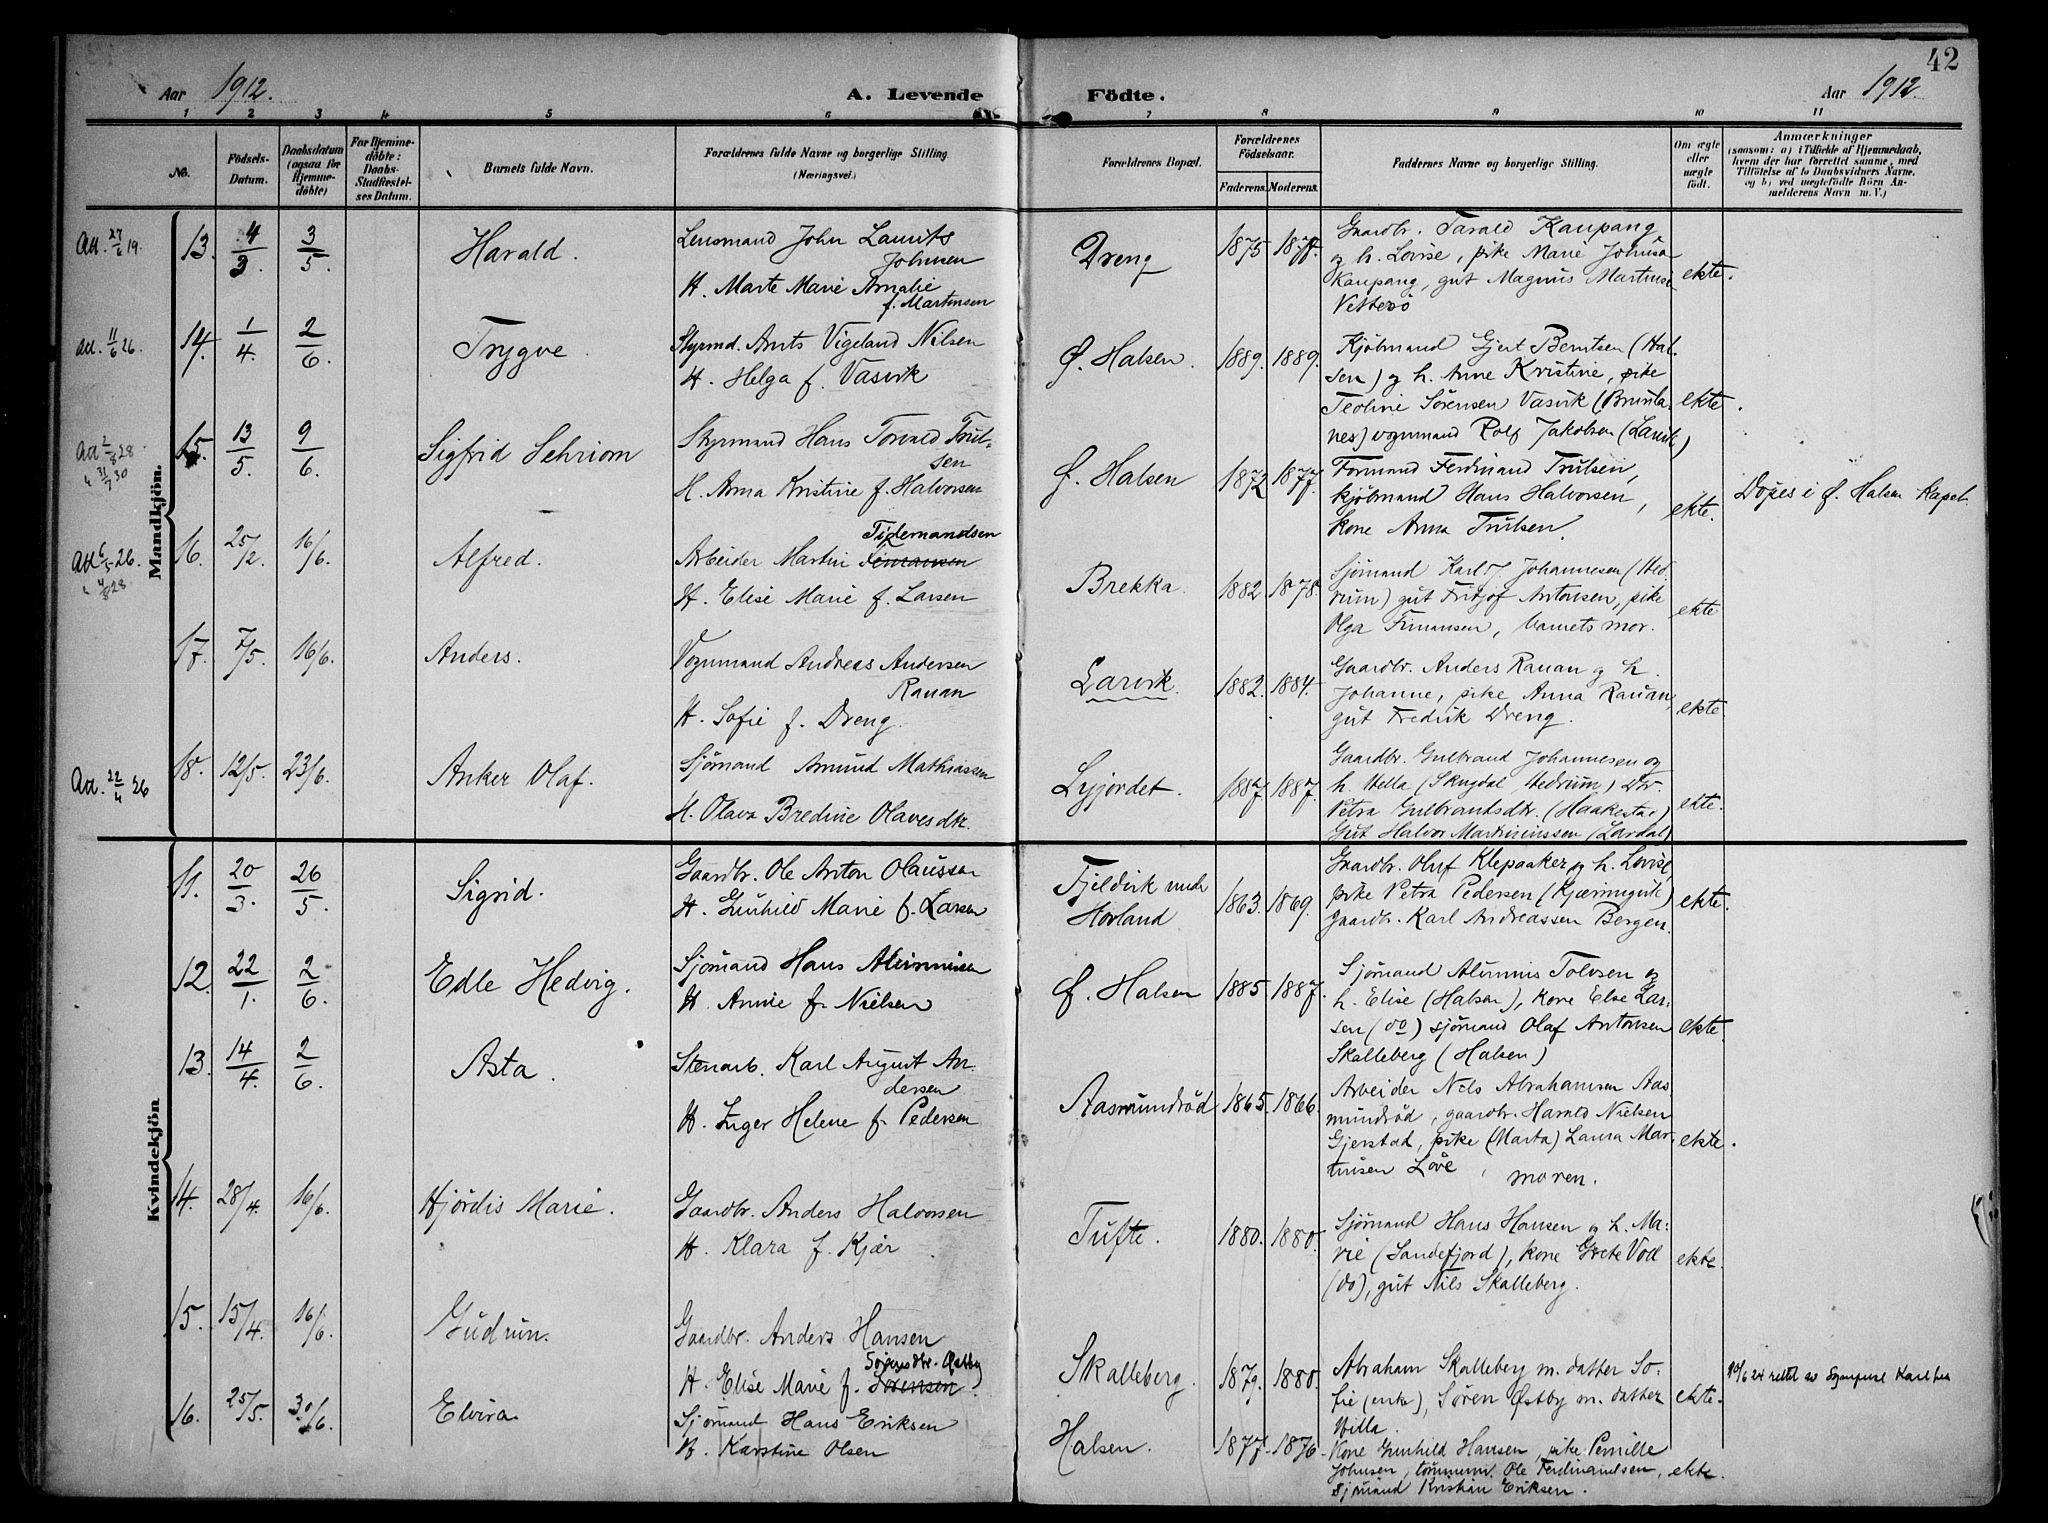 42
Aar 1912. A. Levende Födte. Aar 1912.
1 2 3 4 5 6 7 8 9 10 11
No.
Födsels-Datum.
Daabsdatum (ogsaa for Hjemmedöbte)
For Hjemmedöbte: Daabs-Stadfæstelses Datum.
Barnets fulde Navn.
Forældrenes fulde Navne og borgerlige Stilling. (Næringsvei.)
Forældrenes Bopæl.
Forældrenes Födselsaar.
Faderens. Moderens.
Faddernes Navne og borgerlige Stilling.
Om ægte eller uægte födt.
Anmærkninger
(saasom: a) i Tilfælde af Hjemmedaab, hvem der har forrettet samme, med Tilföielse af to Daabsvidners Navne, og b) ved uægtefödte Börn Anmelderens Navn m. V.)
Mandkjön.
Att. 27/6 19.
13. 4/3. 3/5 Harald.
Lensmand John Laurits
Johnsen
H. Marte Marie Amalie
f. Martinsen
Dreng 1875
Gaardbr. Tarald Kaupang
og h. Lovise, pike Marie Johnsen
Kaupang, gut Magnus Martinsen
ekte.
Att. 11/6 26.
14. 1/4. 2/6. Trygve.
Styrmd. Vigeland Nilsen
H. Helga f. Vasvik
Ø. Halsen. 1889. 1889.
Kjölmand Gjert Berntsen (Hal-
sen) og h. Anne Kristine, pike
Teoline Sörensen Vasvik (Brunla-
nes) vognmand Rolf Jakobsen (Larvik)
ekte.
Att 2/8 28
" 31/7 30
15. 13/5. 9/6. Sigfrid
Styrmand Hans Torvald Trul-
sen
H. Anna Kristine f. Halvorsen
Ø. Halsen 1872 1877.
Formand Ferdinand Trulsen,
kjölmand Hans Halvorsen,
kone Anna Trulsen.
ekte.
Döpes i Ø. Halsen Kapel.
Att 6/5 26.
" 4/8 28
16. 25/2. 16/6. Alfred.
Tidemandsen
Arbeider Martin
H. Elise Marie f. Larsen
Brekka. 1882 1878.
Sjömand Karl J Johannesen (Hed-
rum) gut Fritjof Antonsen, pike
Olga Finansen, barnets mor.
ekte
17. 7/5. 16/6. Anders.
Vognmand Andreas Andersen
Rauan
H. Sofie f. Dreng.
Larvik. 1882. 1884.
Gaardbr. Anders Rauan og h.
Johanne, pike Anna Rauan,
gut Fredrik Dreng.
ekte
Att. 22/4 26
18. 12/5. 23/6. Anker Olaf.
Sjömand Amund Mathiassen
H. Olava Bredine Olavesdtr.
Lysjordet. 1887 1887.
Gaardbr. Gulbrand Johannesen og
h. Hella (Skugdal Hedrum)
Petra Gulbrandsdtr. (Haakestad)
Gut Halvor Martiniussen (Lardal)
ekte.
Kvindekjön
11. 20/3. 26/5. Sigrid.
Gaardbr. Ole Anton Olaussen
H. Gunhild Marie f. Larsen
Fjeldvik under
Hovland
1863. 1869.
Gaardbr. Oluf Klepaaker og h. Lovise,
pike Petra Pedersen
Gaardbr. Karl Andreassen Bergen.
ekte.
12. 22/1. 2/6. Edle Hedvig.
Sjömand Hans Aluminsen
H. Annie f. Nielsen
Ø. Halsen 1885. 1887.
Sjömand Tolvsen og
h. Elise (Halsen), kone Else Lar-
sen (do) sjömand Olaf Antonsen
Skalleberg (Halsen)
ekte.
13. 14/4. 2/6. Asta.
Stenarb. Karl August An-
dersen
H. Inger Helene f. Pedersen
Aasmundröd 1865. 1866.
Arbeider Nils Abrahamsen Aas-
mundröd, gaardbr. Harald Nielsen
Gjerstad, pike (Marta) Laura Mar-
tinsen Löve, moren.
ekte.
14. 28/4. 16/6. Hjördis Marie.
Gaardbr. Anders Halvorsen
H. Klara f. Kjær
Tufte. 1880. 1880.
Sjömand Hans Hansen og h. Ma-
rie (Sandefjord), kone Grete Vold
(do), gut Nils Skalleberg.
ekte.
15. 15/4. 16/6. Gudrun.
Gaardbr. Anders Hansen
Sörensdtr. Østby
H. Elise Marie f. Sörensen.
Skalleberg. 1879. 1880.
Abraham Skalleberg m. datter So-
fie (enke), Sören Østby m. datter
Hilla.
ekte.
16. 25/5. 30/6. Elvira
Sjömand Hans Eriksen
H. Karstine Olsen
Halsen. 1877. 1876
Kone Gunhild Hansen, pike Pernille
Johnsen, tömmerm. Ole Ferdinandsen,
sjömand Kristian Eriksen.
ekte.